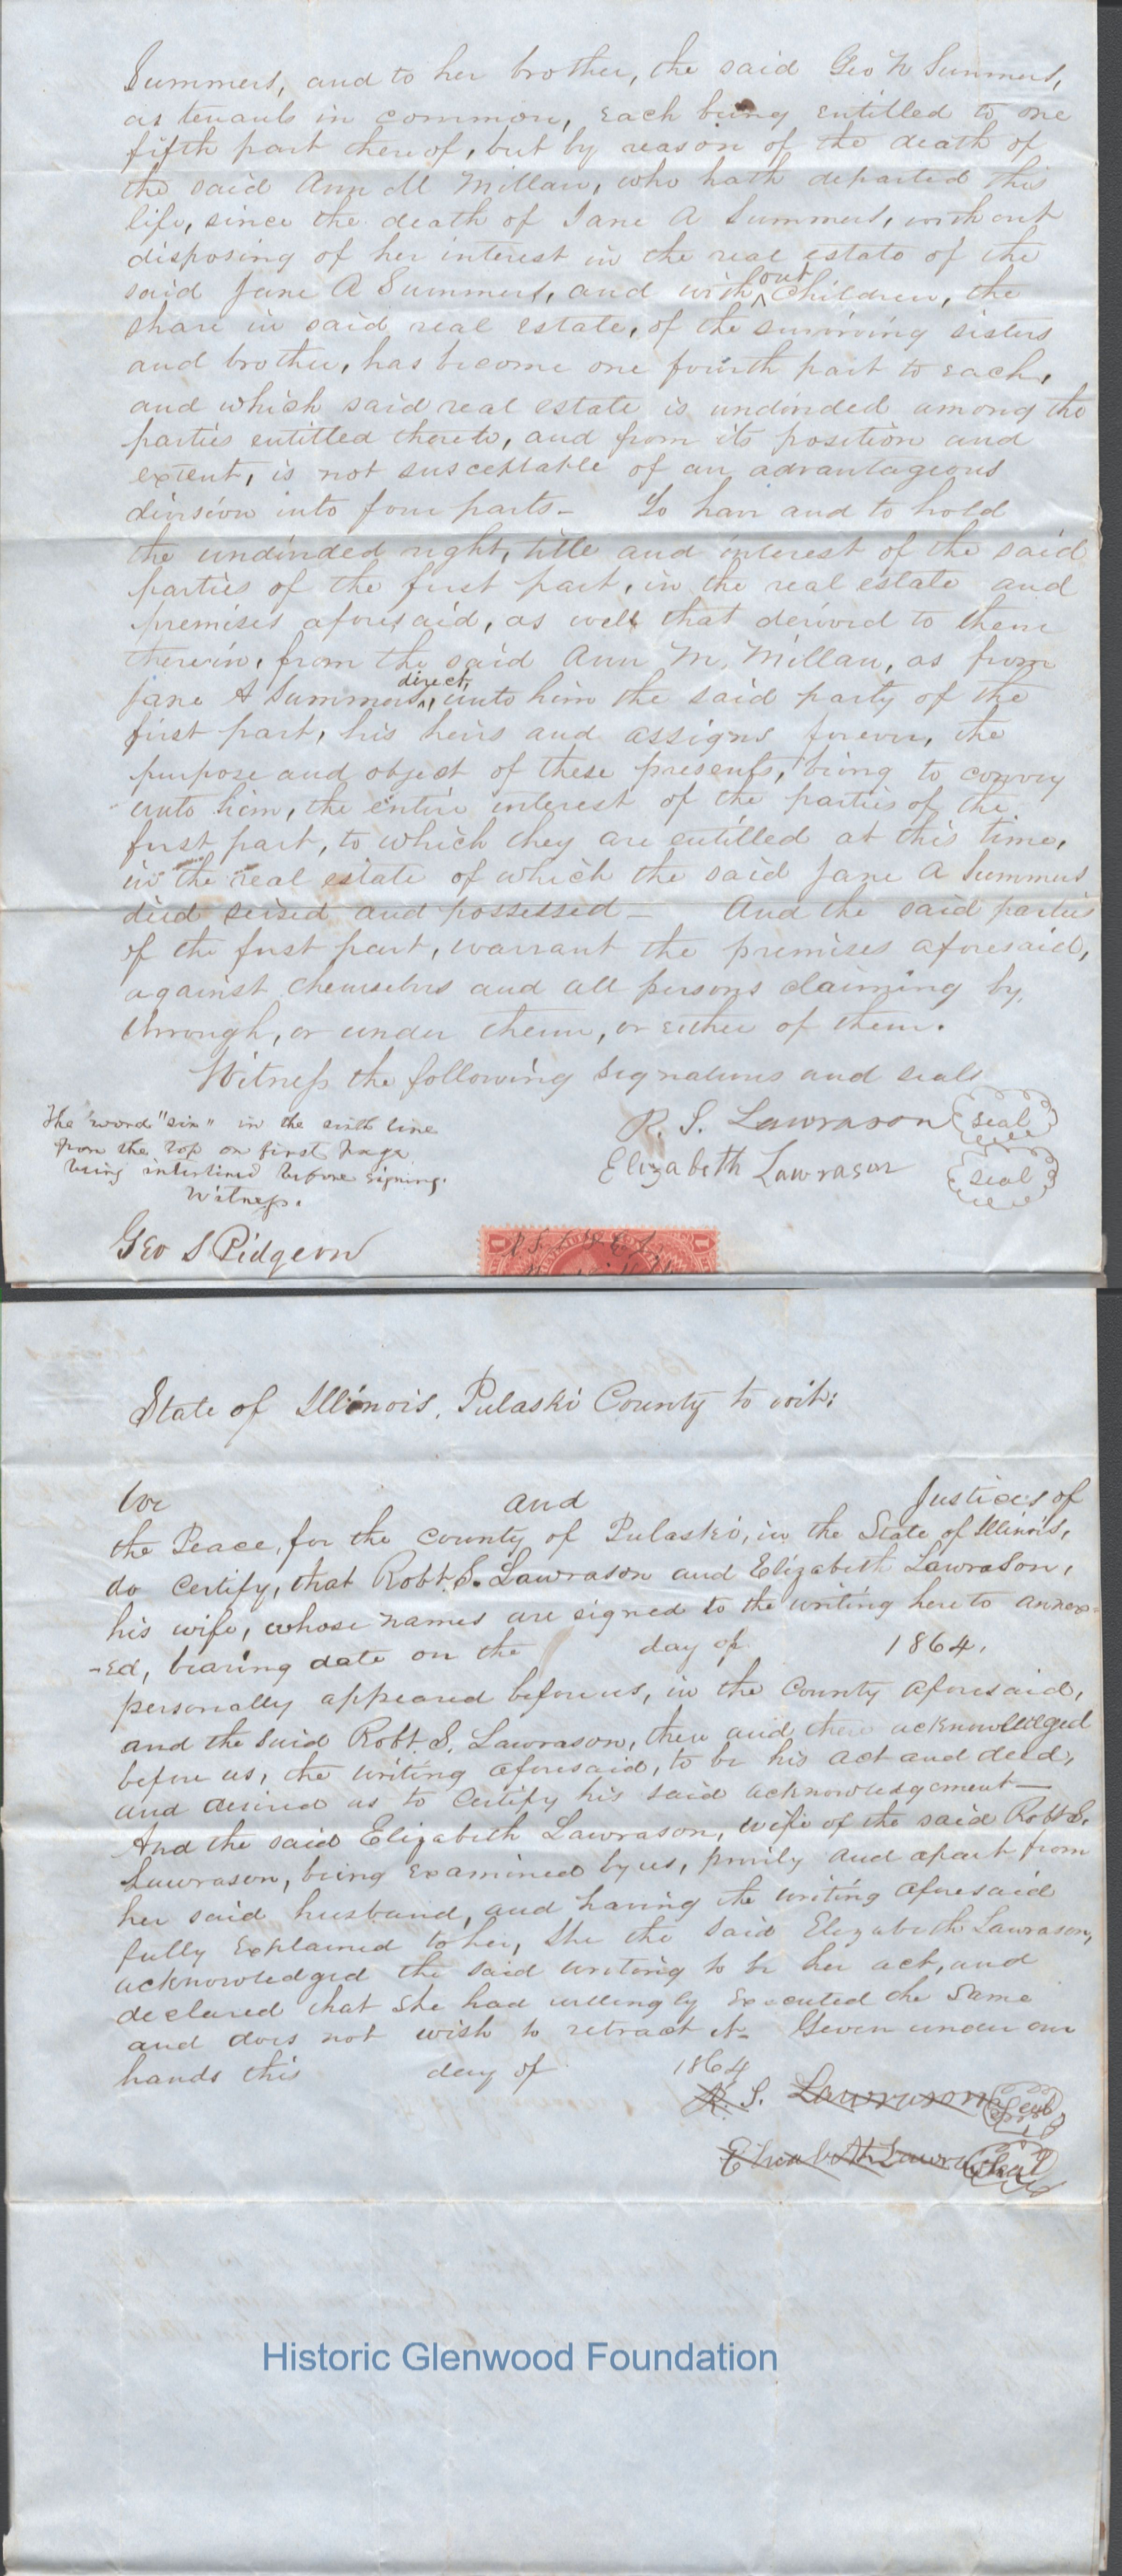 Summers, and to her brother, the said Geo W Summers,
as tenants in common, each being entitled to one
fifth part thereof, but by reason of the death of
the said Ann M Millan, who hath departed this
life, since the death of Jane A Summers, without
disposing of her interest in the real estate of the
said Jane A Summers, and with^out children, the
share in said real estate, of the surviving sisters
and brother, has become one fourth part to each,
and which said real estate is undivided among the
parties entitled thereto, and from its position and
extent, is not susceptable of an advantageous
division into four parts - To have and to hold
the undivided right, title and interest of the said
parties of the first part, in the real estate and
premises aforesaid, as well that derived to them
therein, from the said Ann M. Millan, as from
Jane A Summers ^direct, unto him the said party of the
first part, his heirs and assigns forever, the
purpose and object of these presents, being to convey
unto him, the entire interest of the parties of the
first part, to which they are entitled at this time,
in the real estate of which the said Jane A Summers
died seised and possessed - And the said parties
of the first part, warrant the premises aforesaid,
against themselves and all persons claiming by,
through, or under them, or either of them.
Witness the following signatures and seals
The word "six" in the sixth line
from the top on first page
being interlined before signing.
Witness.
R. S. Lawrason seal
Elizabeth Lawrason seal
Geo S Pidgeon
1 1
R S L & E L
State of Illinois, Pulaski County to wit:
We and Justices of
the Peace, for the county of Pulaski, in the State of Illinois,
do certify, that Robt. S. Lawrason and Elizabeth Lawrason,
his wife, whose names are signed to the writing here to annex-
-ed, bearing date on the day of 1864,
personally appeared before us, in the County aforesaid,
and the said Robt. S. Lawrason, then and there acknowledged
before us, the writing aforesaid, to be his act and deed,
and desired us to certify his said acknowledgement -
And the said Elizabeth Lawrason, wife of the said Robt S.
Lawrason, being examined by us, privily and apart from
her said husband, and having the writing aforesaid
fully explained to her, she the said Elizabeth Lawrason,
acknowledged the said writing to be her act, and
declared that she had willingly executed the same
and does not wish to retract it - Given under our
hands this day of 1864
R. S. Lawrason Seal
Elizabeth Lawrason Seal
Historic Glenwood Foundation